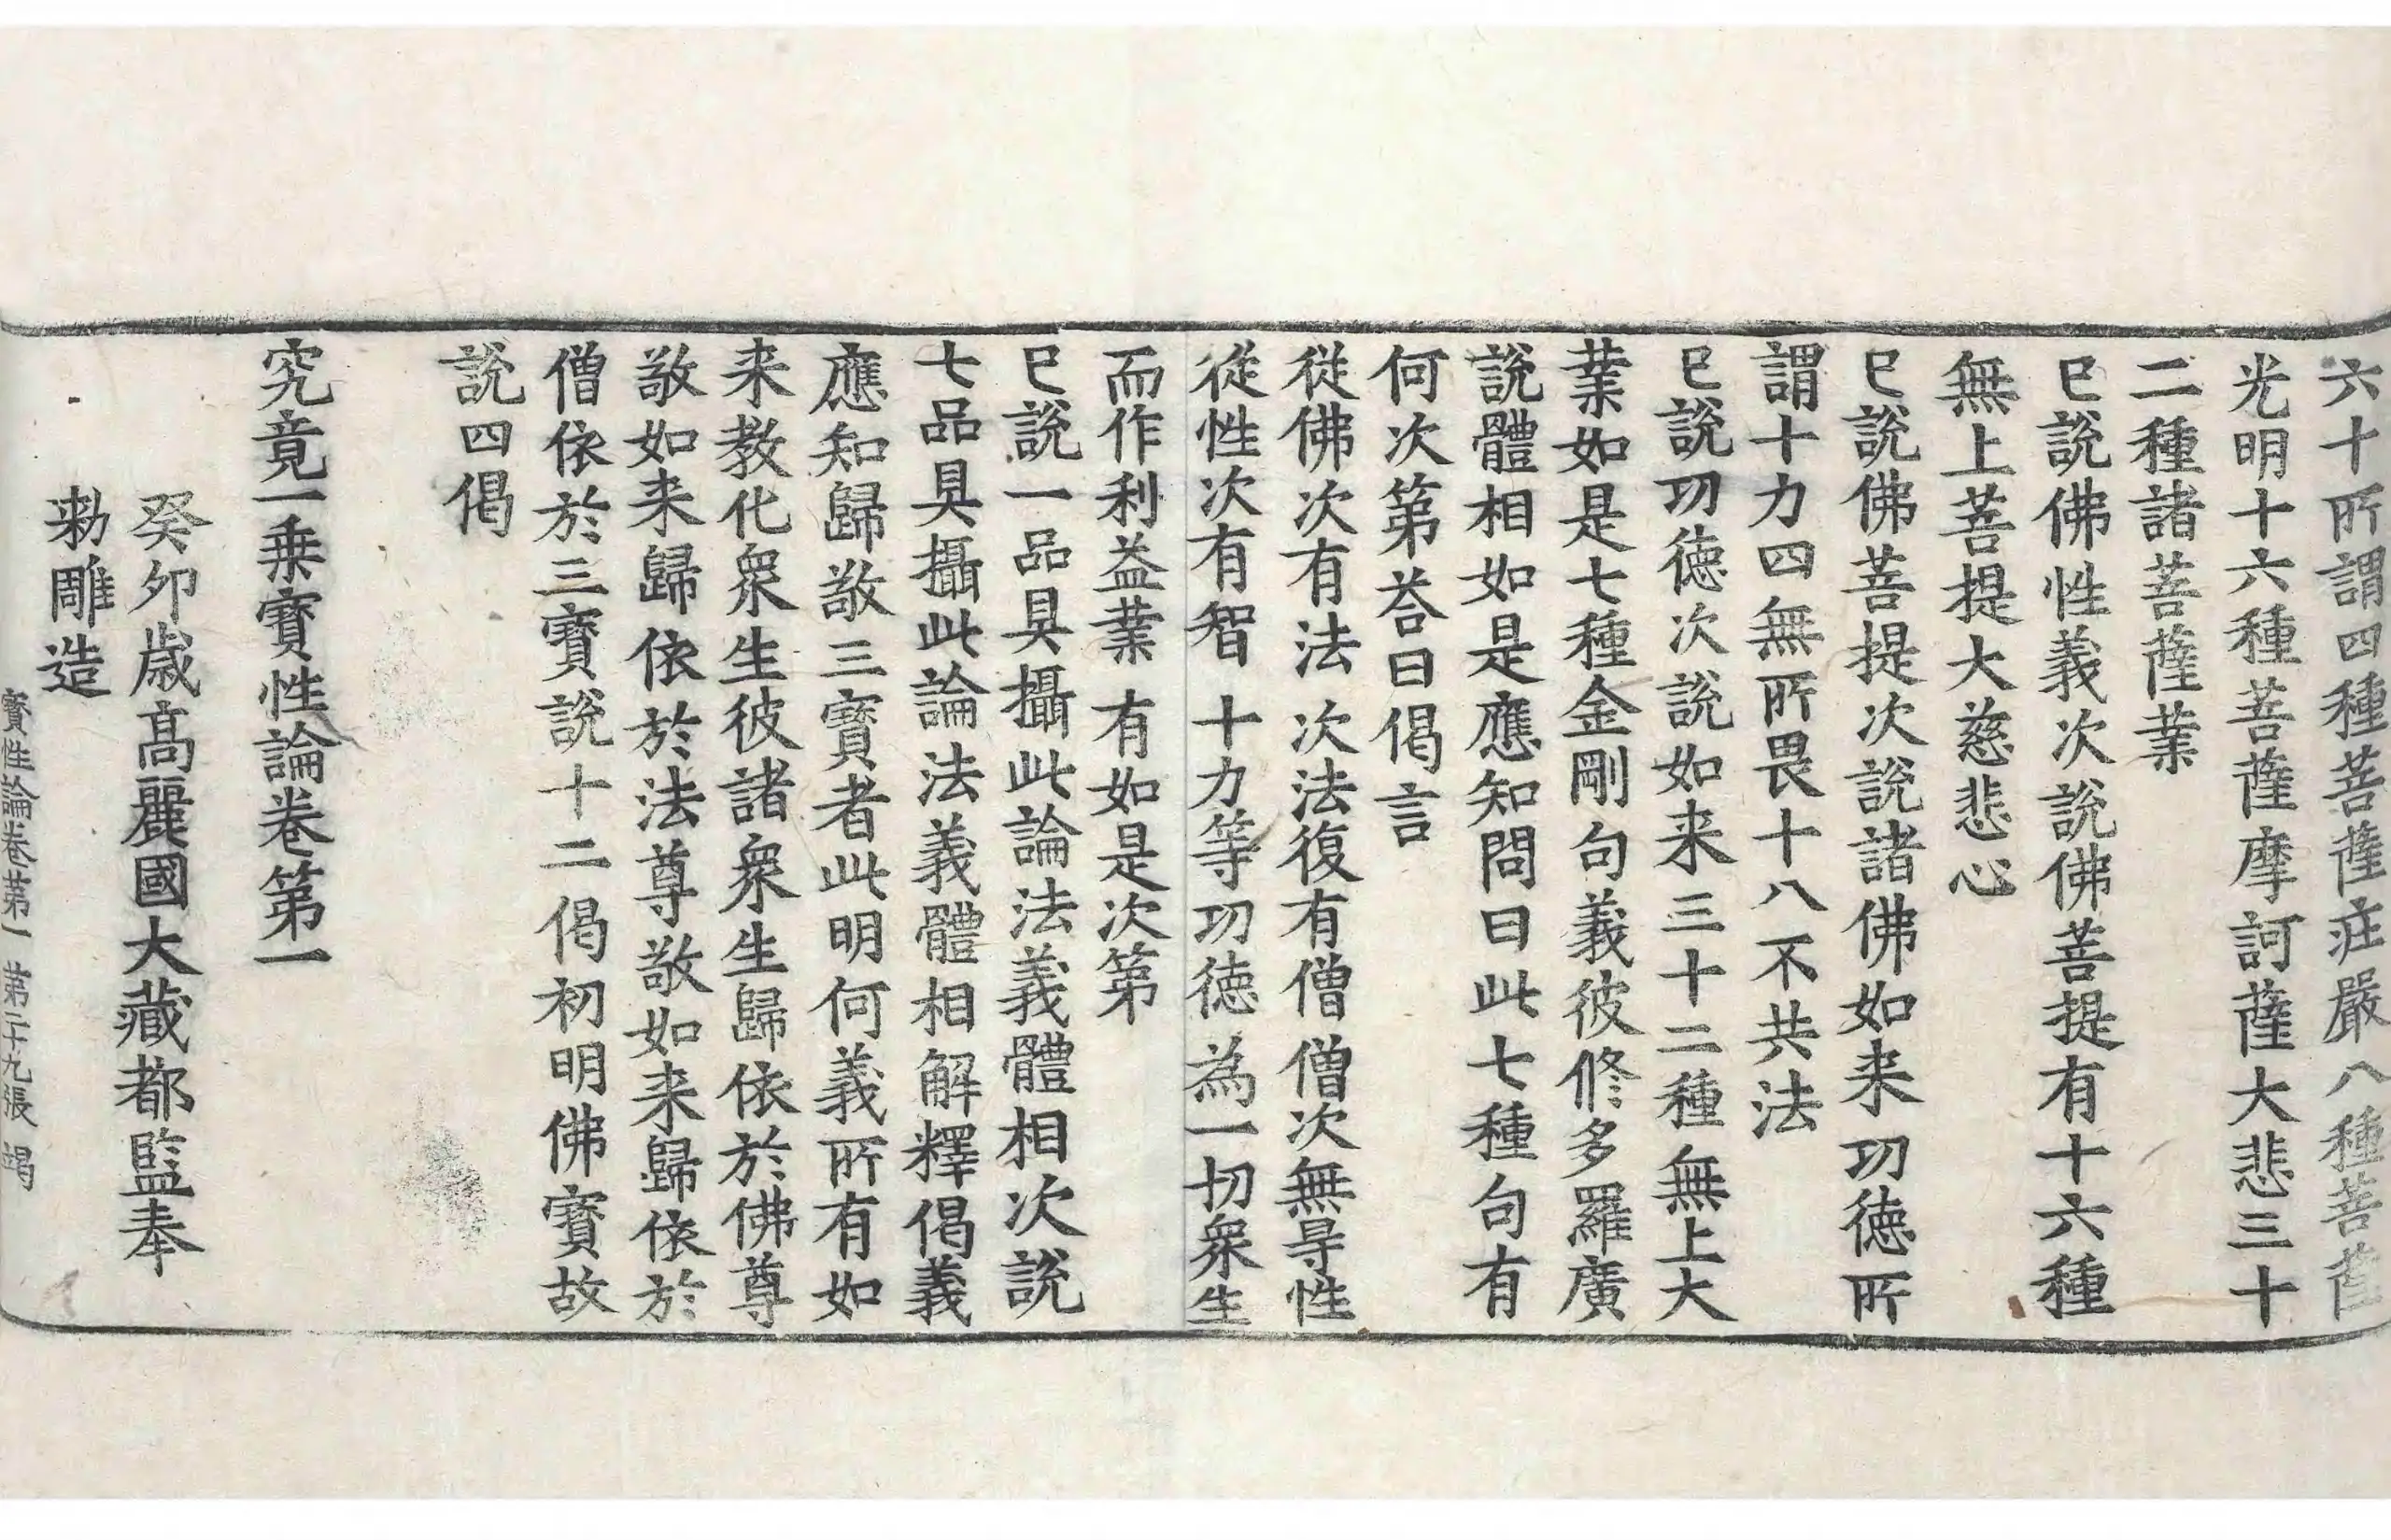 六十所謂四種菩薩莊嚴八種菩薩
光明十六種菩薩摩訶薩大悲三十
二種諸菩薩業
已說佛性義次說佛菩提有十六種
無上菩提大慈悲心
已說佛菩提次說諸佛如来功徳所
謂十力四無所畏十八不共法
已說功徳次說如来三十二種無上大
業如是七種金剛句義彼修多羅廣
說體相如是應知問曰此七種句有
何次第荅曰偈言
從佛次有法 次法復有僧 僧次無㝵性
從性次有智 十力等功徳 為一切衆生
而作利益業 有如是次第
已說一品具攝此論法義體相次說
七品具攝此論法義體相解釋偈義
應知歸敬三寶者此明何義所有如
来教化衆生彼諸衆生歸依於佛尊
敬如来歸依於法尊敬如来歸依於
僧依於三寶說十二偈初明佛寶故
說四偈
究竟一乗寶性論卷第一
癸卯歳髙麗國大藏都監奉
勑雕造
寶性論卷第一 第二十九張 竭